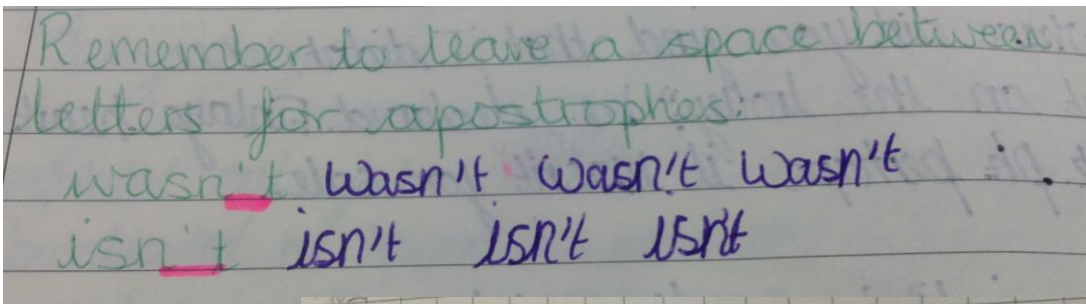 Remember to leave a space between
letters for apostrophes:
wasn't wasn't wasn't wasn't
isn't isn't isn't isn't